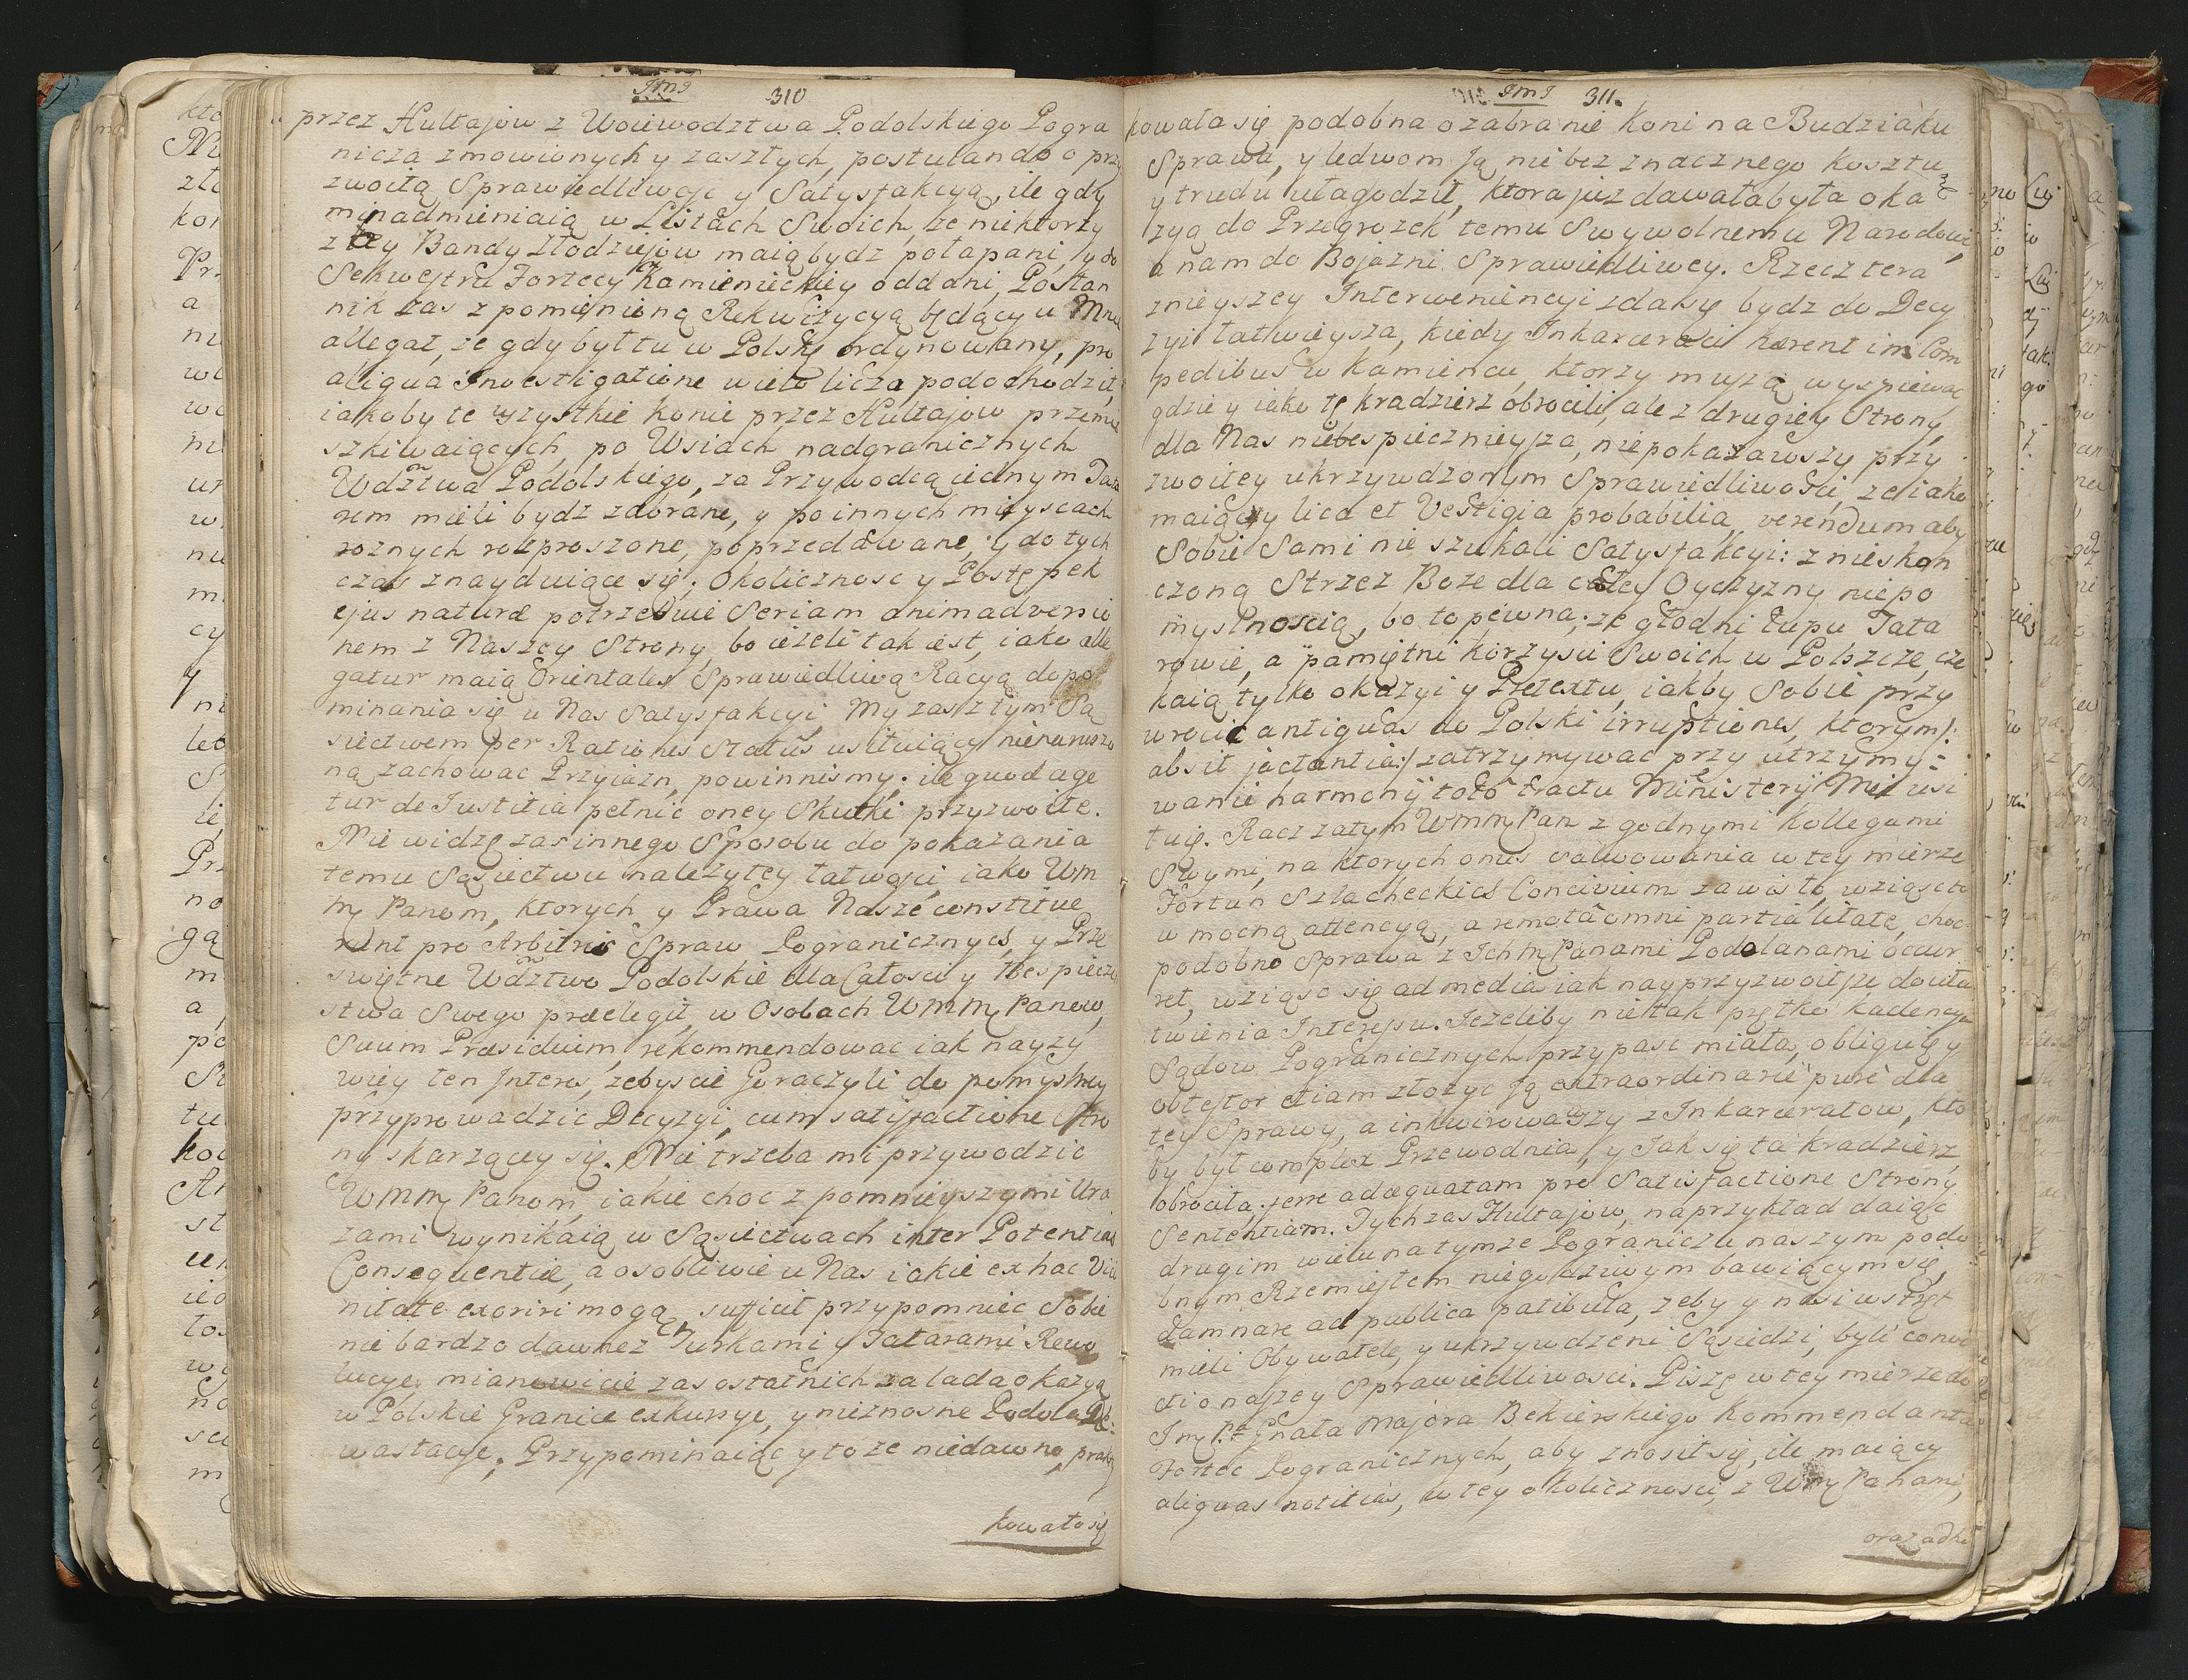 310
przez Hultajow z Woiewodztwa Podolskiego Pogra
nicza zmowionych y zaszłych, postulando o przy
zwoitą Sprawiedliwośc y Satysfakcyą, ile gdy
mi nadmieniaią w Listach Swoich, że niektorzy
z tey Bandy złodziejow maią bydz połapani, y do
Sekwestru Fortecy Kamienieckiey oddani, Posłan
nik zas z pomienioną Rekwizycyą będący u Mnie
allegat, że gdy był tu w Polskę ordynowany, pro
aliqua investigatione wielo licza podochodził,
iakoby te wszystkie konie przez Hultajow przemie
szkiwaiących, po Wsiach nadgranicznych
Wdztwa Podolskiego, za Przywodcą iednym Tata
rem mieli bydz zabrane, y po innych mieyscach
roznych rozproszone, poprzedawane, y do tych
czas znayduiące się; Okolicznosc y Postępek
ejus naturæ potrzebuie Seriam animadversio
nem z Naszey Strony, bo ieżeli tak iest, iako alle
gatur maią Orientales Sprawiedliwą Racyą dopo
minania się u Nas Satysfakcyi, My zas z tym Są
siectwem per Rationes Status usiłuiący nienarusza
ną zachowac Przyiazn, powinnismy, ile quod age
tur de Iustitia pełnic oney Skutki przyzwoite.
Nie widzę zas innego Sposobu do pokazania
temu Sąsiectwu należytey łatwości, iako Wm
M Panom, ktorych y Prawa Nasze constitue
runt pro Arbitris Spraw Pogranicznych, y Prze
swiętne Wdztwo Podolskie dla Całosci y Bespieczen
stwa Swego præelegit, w Osobach WMM Panow,
Suum Præsidium, rekommendowac iak nayży
wiey ten Interes, żebyscie Go raczyli do pomyslney
przyprowadzic Decyzyi, cum satisfactione Stro
ny skarżącey się. Nie trzeba mi przywodzic
WMM Panom, iakie choc z pomnieyszymi Ura
zami wynikaią w Sąsiectwach inter Potentias
Consequentiæ, a osobliwie u Nas iakie ex hac Vici
nitate exoriri mogą, sufficit przypomniec Sobie
nie bardzo dawne z Turkami y Tatarami Rewo
lucye, mianowicie zas ostatnich za lada okazyą
w Polskie Granice exkursye, y nieznosne Podola De
wastacye. Przypominaiąc y to że niedawno prakty
kowała się
311.
kowała się podobna o zabranie koni na Budziaku
Sprawa, y ledwom Ją nie bez znacznego kosztu
y trudu ułagodził, ktora już dawała była oka
zyą do Przegrożek temu Swywolnemu Narodowi,
a nam do Bojazni Sprawiedliwey. Rzecz tera
znieyszey Interweniencyi zda się bydz do Decy
zyi łatwieysza, kiedy Inkarcerati hærent in Com
pedibus w Kamiencu, ktorzy muszą wyspiewac
gdzie y iako tę kradzierz obrocili, ale z drugiey Strony
dla Nas niebespiecznieysza, nie pokazawszy przy
zwoitey ukrzywdzonym Sprawiedliwości, że iako
maiący lica et Vestigia probabilia, verendum aby
Sobie Sami nie szukali Satysfakcyi: z nieskon
czoną Strzez Boze dla całey Oyczyzny niepo
myslnoscią, bo to pewna; że głodni łupu Tata
rowie, a pamiętni korzysci Swoich w Polszcze, cze
kaią tylko okazyi y Pretextu, iakby Sobie przy
wrocic antiquas do Polski irruptiones, ktorym /:
absit jactantia:/ zatrzymywac przy utrzymy-
wanie harmonij toto tractu Ministerij Mei usi
łuię. Racz zatym WMM Pan z godnymi Kollegami
Swymi, na ktorych onus salwowania w tey mierze
Fortun Szlacheckich Concivium zawisło, wziąsc to
w mocną attencyą, a remota omni partialitate, choc
podobno Sprawa z Ichm Panami Podolanami occur
ret, wziąsc się ad media iak nayprzyzwoitsze do uła
twienia Interessu. Jeżeliby nie tak prętko kadencya
Sądow Pogranicznych przypasc miała, obliguię y
obtestor etiam złozyc Ją extraordinariè purè dla
tey Sprawy, a inkwirowawszy z Inkarceratow, kto
by był complex Przewodnia, y Jak się ta kradzierz
obrociła, ferre adæquatam pro Satisfactione Strony
Sententiam. Tych zas Hultajow, na przykład daiąc
drugim wielu na tymże Pograniczu naszym podo
bnym Rzemiesłem niegodziwym bawiącym się,
damnare ad publica patibula, żeby y nasi wstręt
mieli Obywatele, y ukrzywdzeni Sąsiedzi, byli convi
cti o naszey Sprawiedliwosci. Piszę w tey mierze do
Im Pa Gnała Majora Bekierskiego Kommendanta
Fortec Pogranicznych, aby znosił się, ile maiący
aliquas notitias, w tey okolicznosci, z Wm Panami,
oraz adhi